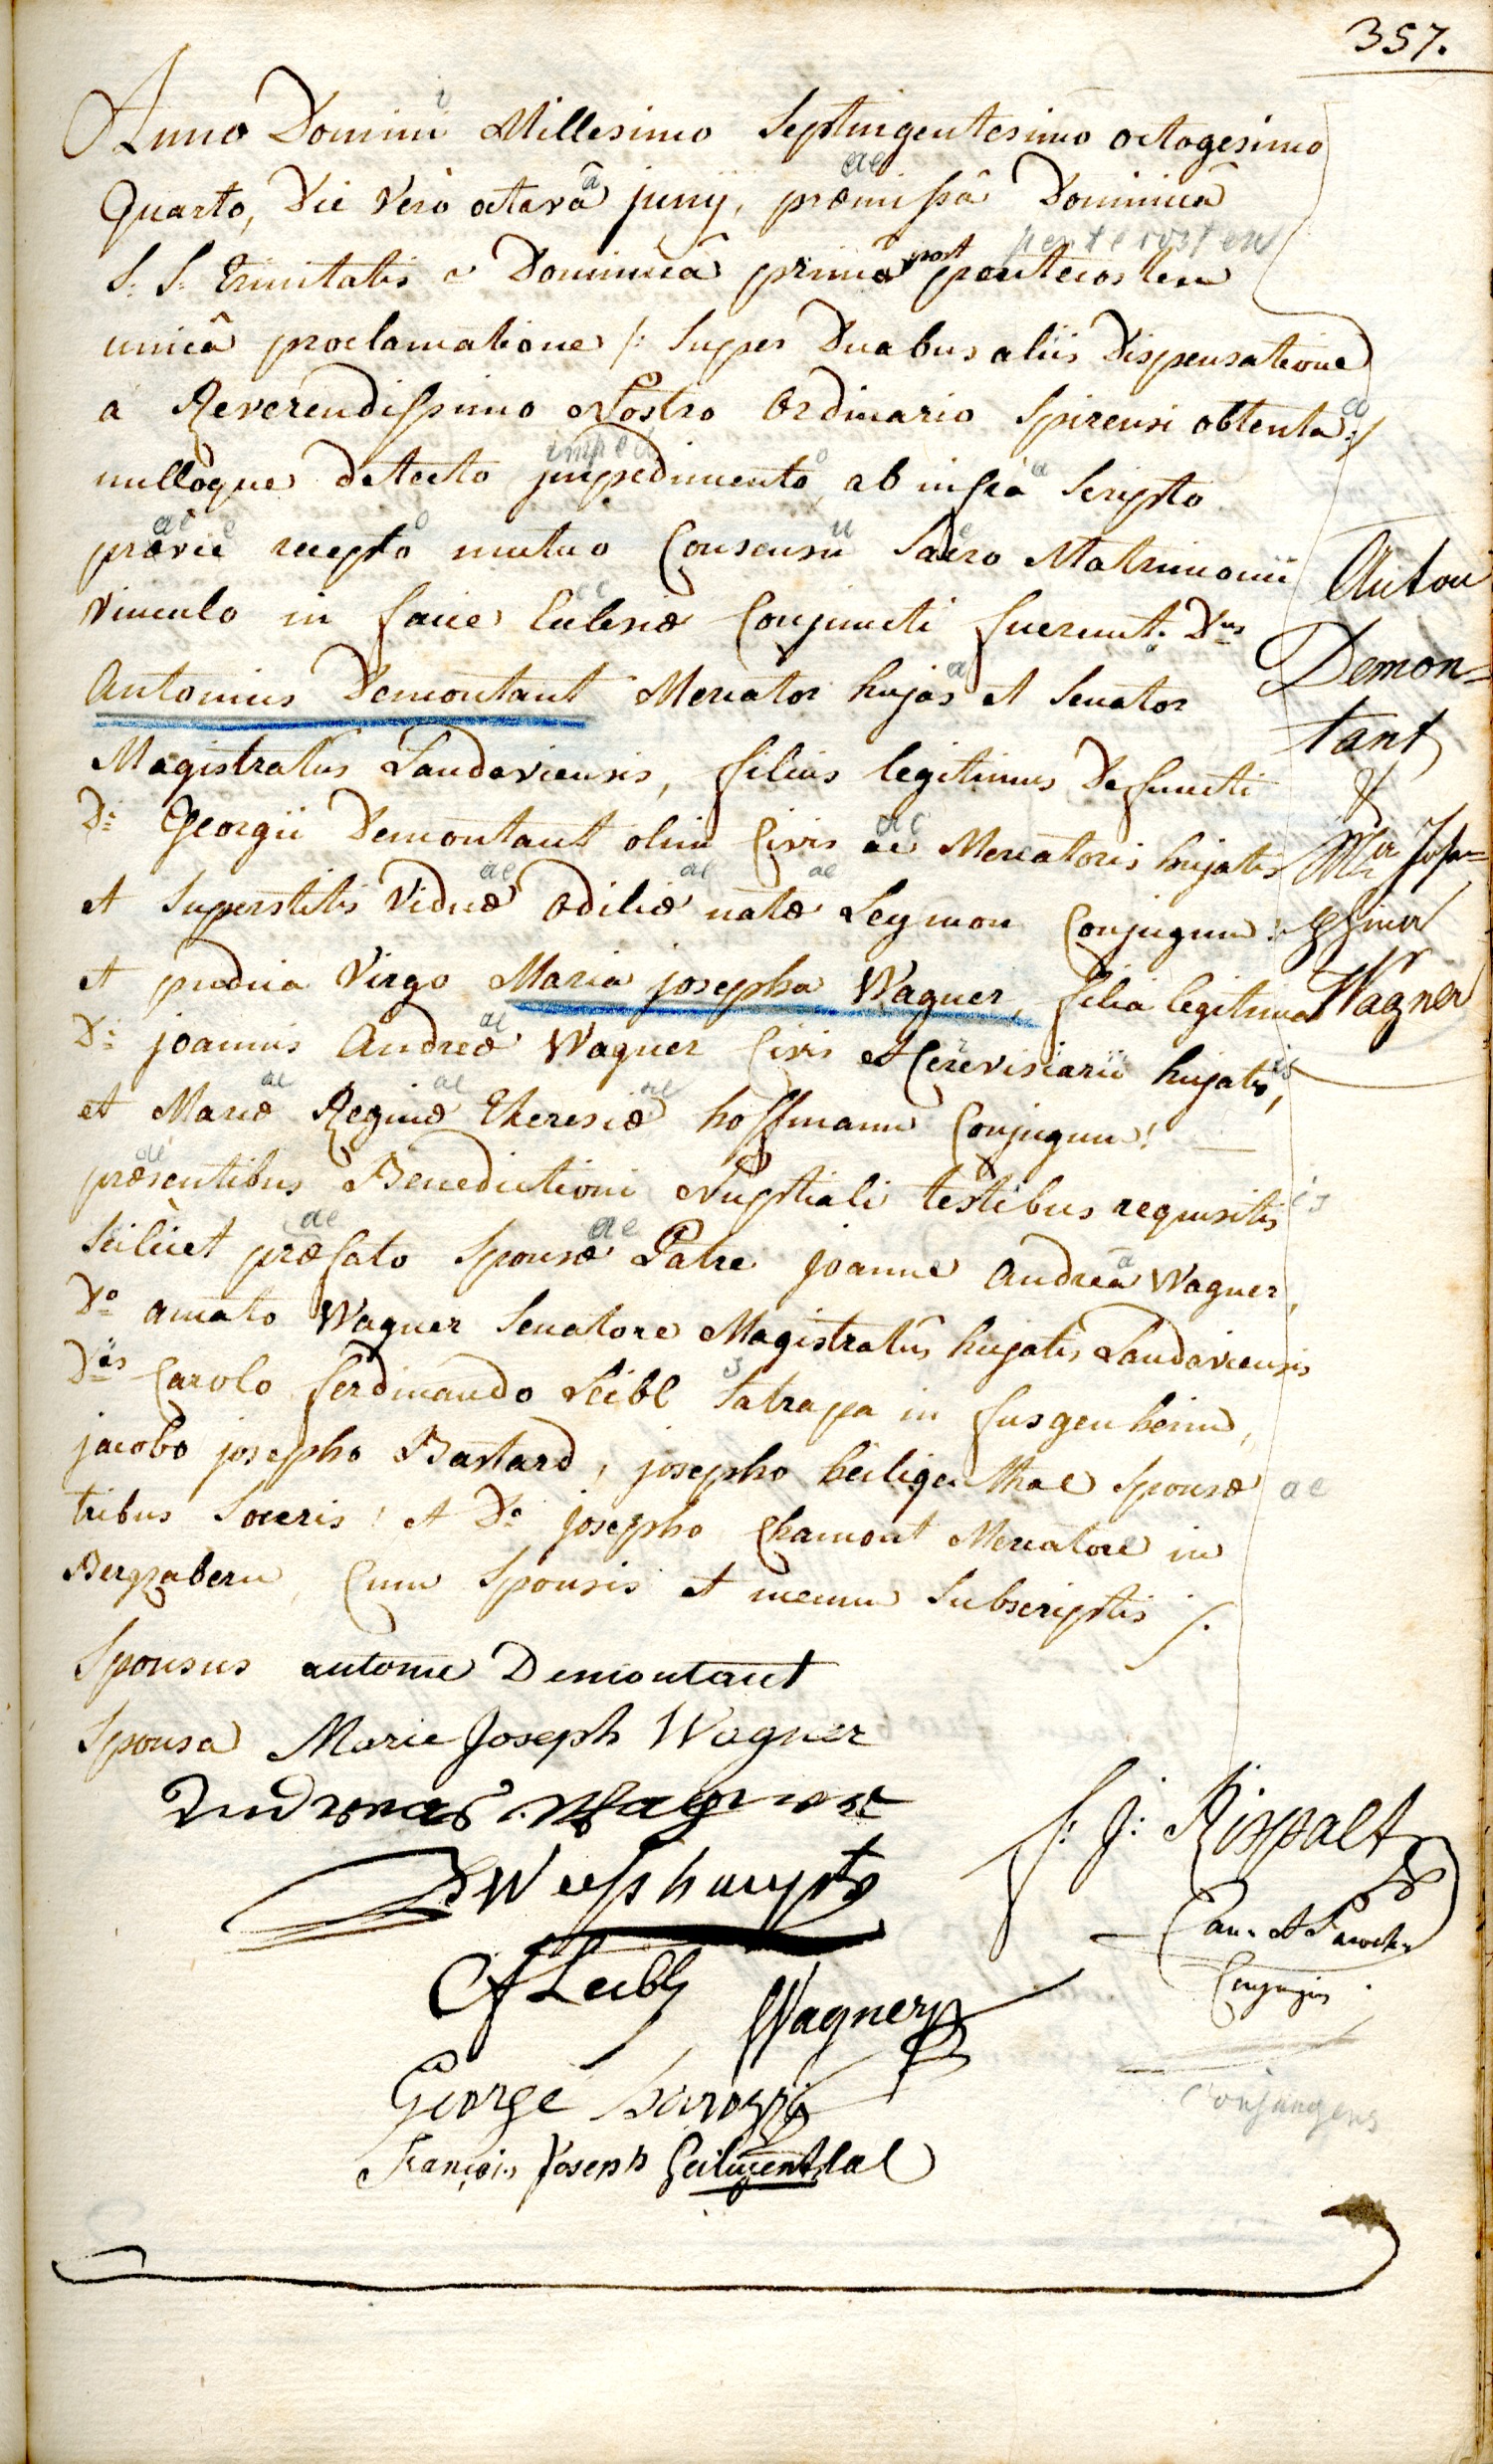 357.
Anno Domini Millesimo Septingentesimo octogesimo
Quarto, Die Vero octavâ junij, præmissâ Dominicâ
S: S: Trinitatis Dominicâ primâ post pentecosten
unicâ proclamatione /: Super Duabus aliis Dispensatione
a Reverendissimo Nostro Ordinario Spirensi obtenta :/
nulloque detecto impedimento, ab infra Scripto
prævie recepto mutuo Consensu Sacro Matrimonii
Vinculo in facie Ecclesiæ Conjuncti fuerunt. Dnus
Antonius Demontant Mercator hujas et Senator
Magistratus Landaviensis, filius legitimus Defuncti
Di: Georgii Demontant olim Civis ac Mercatoris hujatis
et Superstitis Viduæ Odiliæ natæ Leymon Conjugum:
et pudica Virgo Maria josepha Wagner, filia legitima
Di: joannis Andreæ Wagner Civis et Cerevisiarii hujatis,
et Mariæ Reginæ Theresiæ hoffmann Conjugum!
præsentibus Benedictioni Nuptiali testibus requisitis
Scilicet præfato Sponsæ Patre joanne Andreâ Wagner,
Do amato Wagner Senatore Magistratûs hujatis Landaviensis
Diis Carolo ferdinando Leibl Satrapa in fusgenheim,
jacobo josepho Bastard, josepho heiligenthal Sponsæ
tribus Soceris! et Do josepho Chamont Mercatore in
Bergzabern, Cum Sponsis et mecum Subscriptis /.
Anton
Demon=
tant
&
Mia Jose=
phina
Wagner
Sponsus antoine Demontant
Sponsa Marie Joseph Wagner
Andreas Wagner
Weishaupt
CfLeibl
Wagner
George
François Joseph Heiligenthal
f: J: Rispalt
Can. et Paroch.
Conjungens